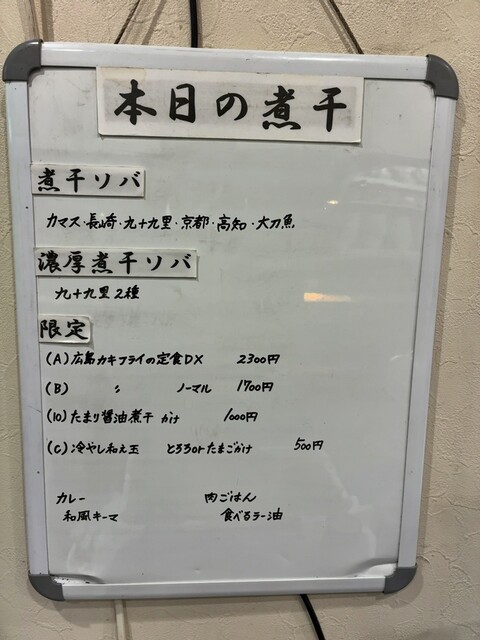 本日の煮干
煮干ソバ
カマス・長崎・九十九里・京都・高知・大刀魚
濃厚煮干ソバ
九十九里2種
限定
(A)広島カキフライの定食DX 2300円
(B) 〃 ノーマル 1700円
(10)たまり醤油煮干 かけ 1000円
(C)冷やし和え玉 とろろorたまごかけ 500円
カレー 肉ごはん
和風キーマ 食べるラー油